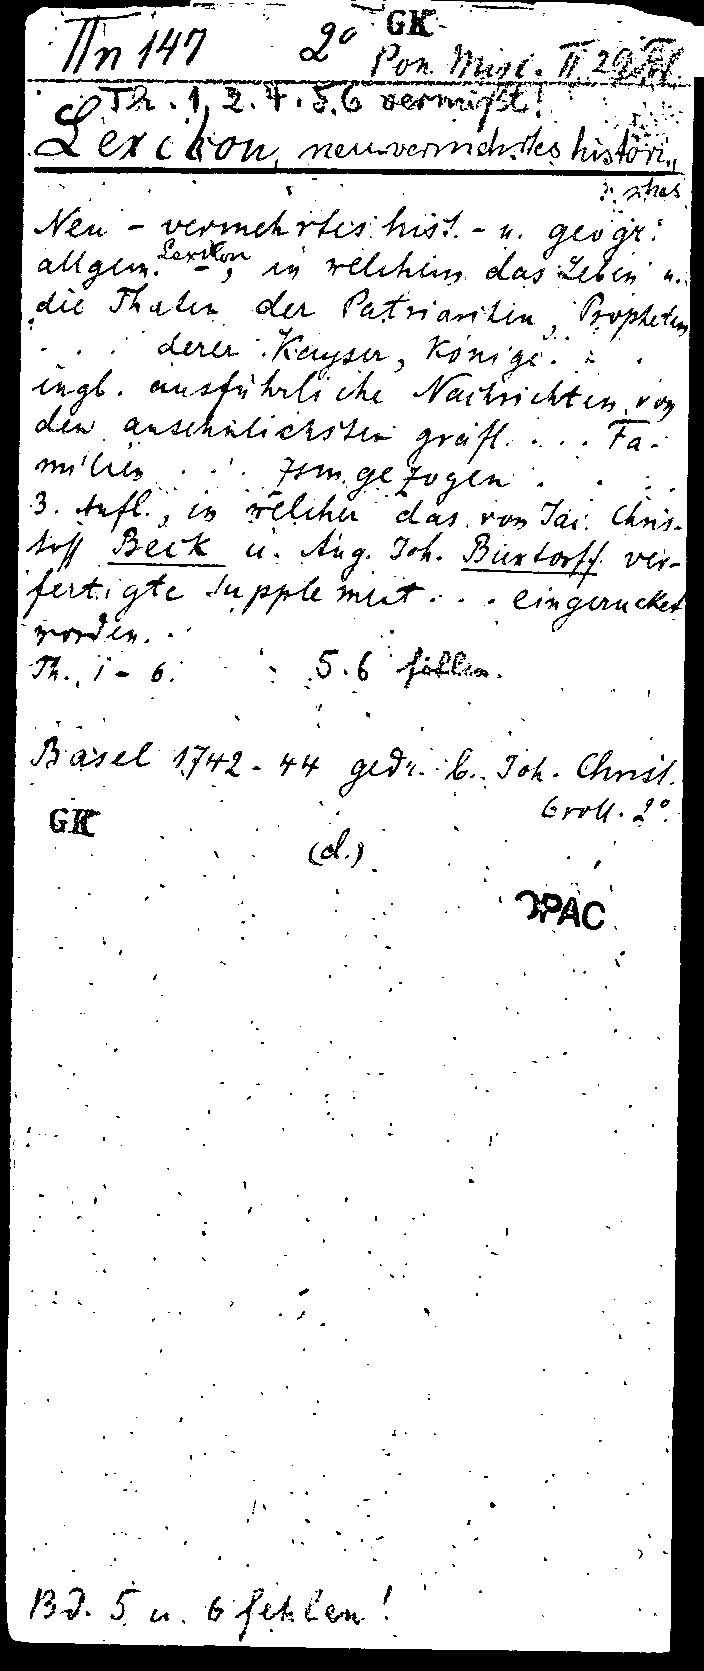 GK
IIn 147 2° Pon Misc. II 29 fol.
Th. 1. 2. 4. 5. 6 vermißt!
Lexikon, neu-vermehrtes histori-
sches
Neu-vermehrtes hist.- u. geogr.
allgem. Lexikon -, in welchem das Leben u.
die Thaten der Patriarchen, Propheten
. . . derer Kayser, Könige . . .
ingl. ausführliche Nachrichten von
den ansehnlichsten gräfl. . . . Fa-
milien . . . zsmgezogen . . .
3. Aufl., in welcher das von Jac. Chris-
toff Beck u. Aug. Joh. Buxtorff ver-
fertigte Supplement . . . eingerucket
worden. . .
Th. 1 - 6. 5. 6 fehlen.
Basel 1742-44 gedr. b. Joh. Christ.
2°.
GK
(d.)
OPAC
Bd. 5 u. 6 fehlen!